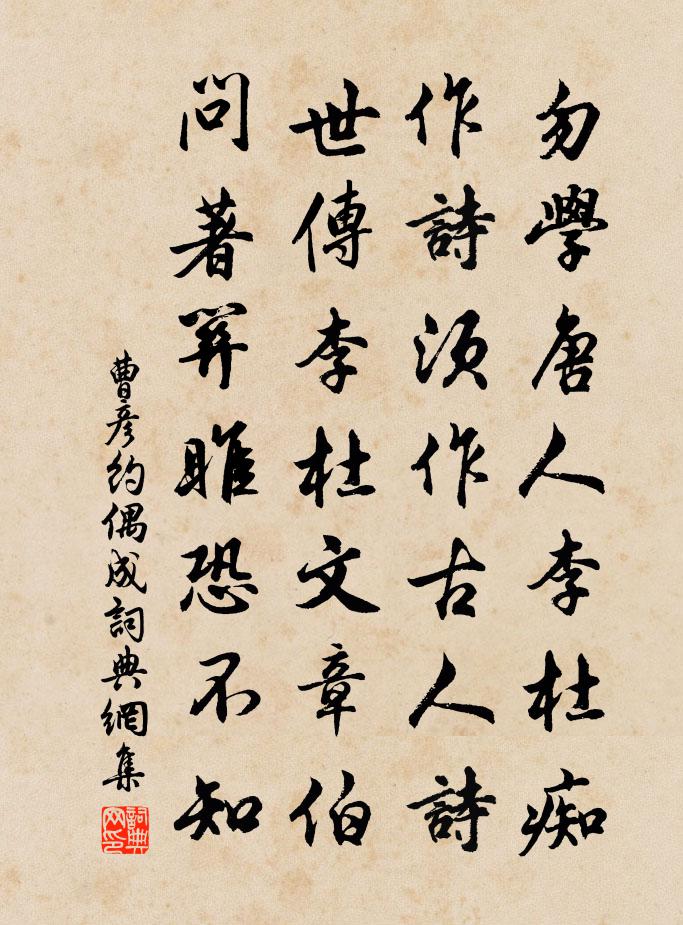 勿學唐人李杜痴
作詩須作古人詩
世傳李杜文章伯
問著關雎恐不知
曹彥約偶成詞典網集
詞典网印